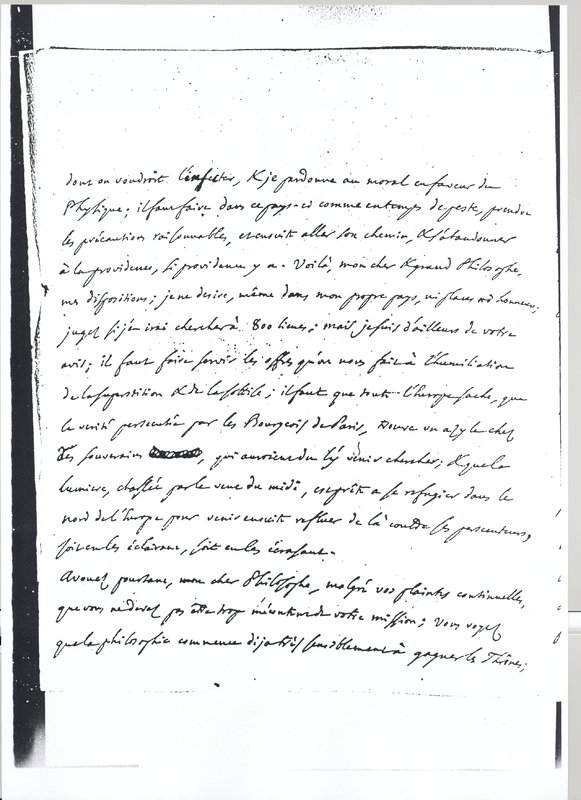 dont on voudroit l'infecter, & je pardonne au moral en faveur du
Physique. il faut faire dans ce pays-ci comme en temps de peste, prendre
les précautions raisonnables, et ensuite aller son chemin, & s'abandonner
à la providence, si providence y a. Voilà, mon cher & grand Philosophe,
mes dispositions; je ne desire, même dans mon propre pays, ni places ni honneurs;
jugez si j'en irai chercher à 800 lieues; mais je suis d'ailleurs de votre
avis; il faut faire servir les offres qu'on nous fait à l'humiliation
de la superstition & de la sottise; il faut que toute l'Europe sache, que
la verité persecutée par les Bourgeois de Paris, trouve un azyle chez
les souverains, qui auroient du l'y venir chercher; & que la
lumiere, chassée par le vent du midi, est prête a se refugier dans le
nord de l'Europe pour venir ensuite refluer de là contre ses persecuteurs,
soit en les éclairant, soit en les écrasant.
Avouez pourtant, mon cher Philosophe, malgré vos plaintes continuelles,
que vous ne devez pas être trop mécontent de votre mission; vous voyez
que la philosophie commence dija très sensiblement à gagner les Thrônes;